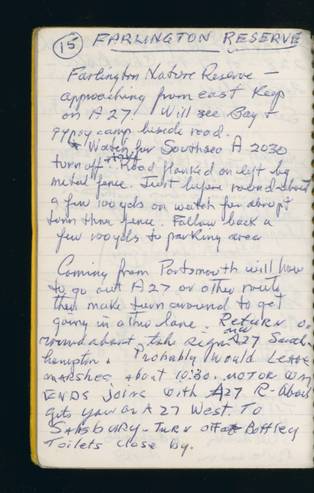 15 FARLINGTON RESERVE
Farlington Nature Reserve –
approaching from east Keep
on A27. Will see Bay &
gypsy camp beside road.
* Watch for Southsea A 2030
turn off. Road flanked on left by
metal fence. Just before roundabout
a few 100 yds on watch for abrupt
turn thru fence. Follow back a
few 100 yds to parking area
Coming from Portsmouth will have
to go out A27 or other route
then make turn around to get
going in other lane. Return on
roundabout, take sign A27 South
hampton. Probably would LEAVE
MARSHES about 10:30. MOTOR WAY
ENDS joins with A27 R-About
gets you on A27 West. To
SALISBURY - TURN off at
Toilets close by.